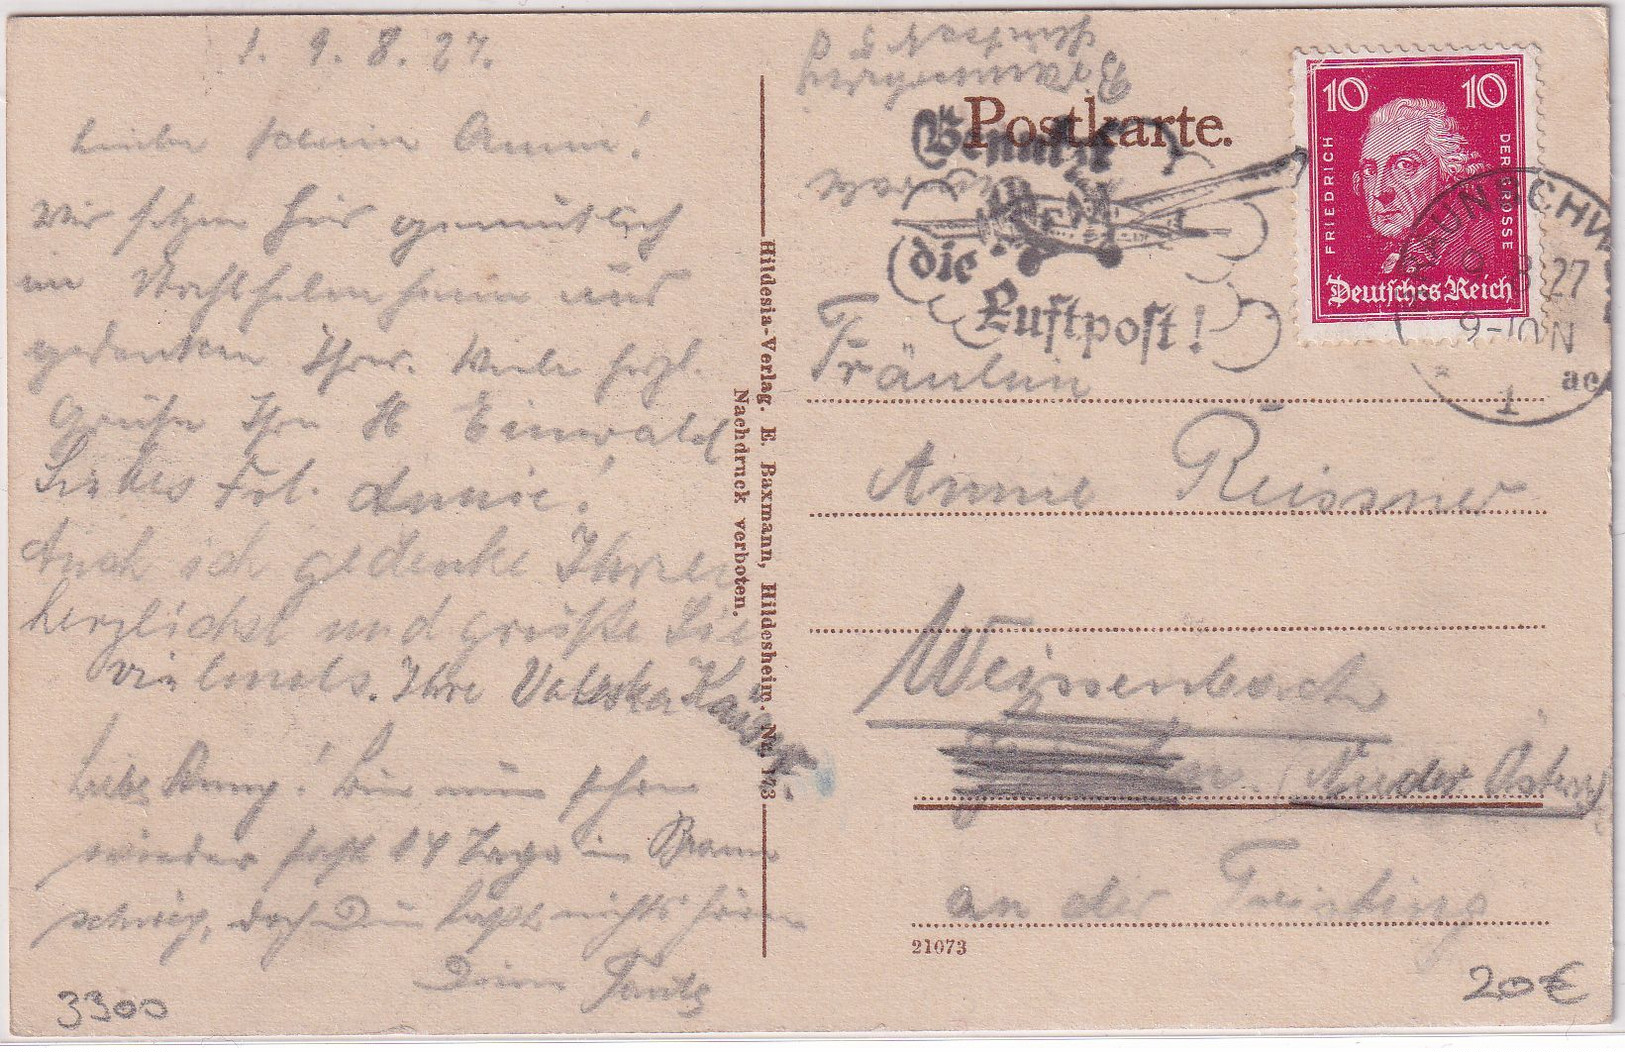 9. 8. 27.
Anni!
Wir sitzen hier gemütlich
im und
gedenken Ihrer. Viele herzl.
Grüße Ihr H Einwald
Liebes Frl. Annie!
Auch ich gedenke Ihrer
herzlichst und grüße Sie
vielmals. Ihre Valeska
Liebe Anny! Bin nun schon
wieder fast 14 Tage in Braun
schweig, doch Du läßt nichts hören
Dein
3300
Hildesia-Verlag. E. Baxmann, Hildesheim. No. 1/3
Nachdruck verboten.
Postkarte.
Benutzt
die
Luftpost!
10 10
FRIEDRICH
DER GROSSE
Deutsches Reich
BRAUNSCHW
9 8 27
9-10 N
1
ac
Fräulein
Annie Reissner
Weissenbach
(Nieder Österr)
an der Triesting
21073
20€